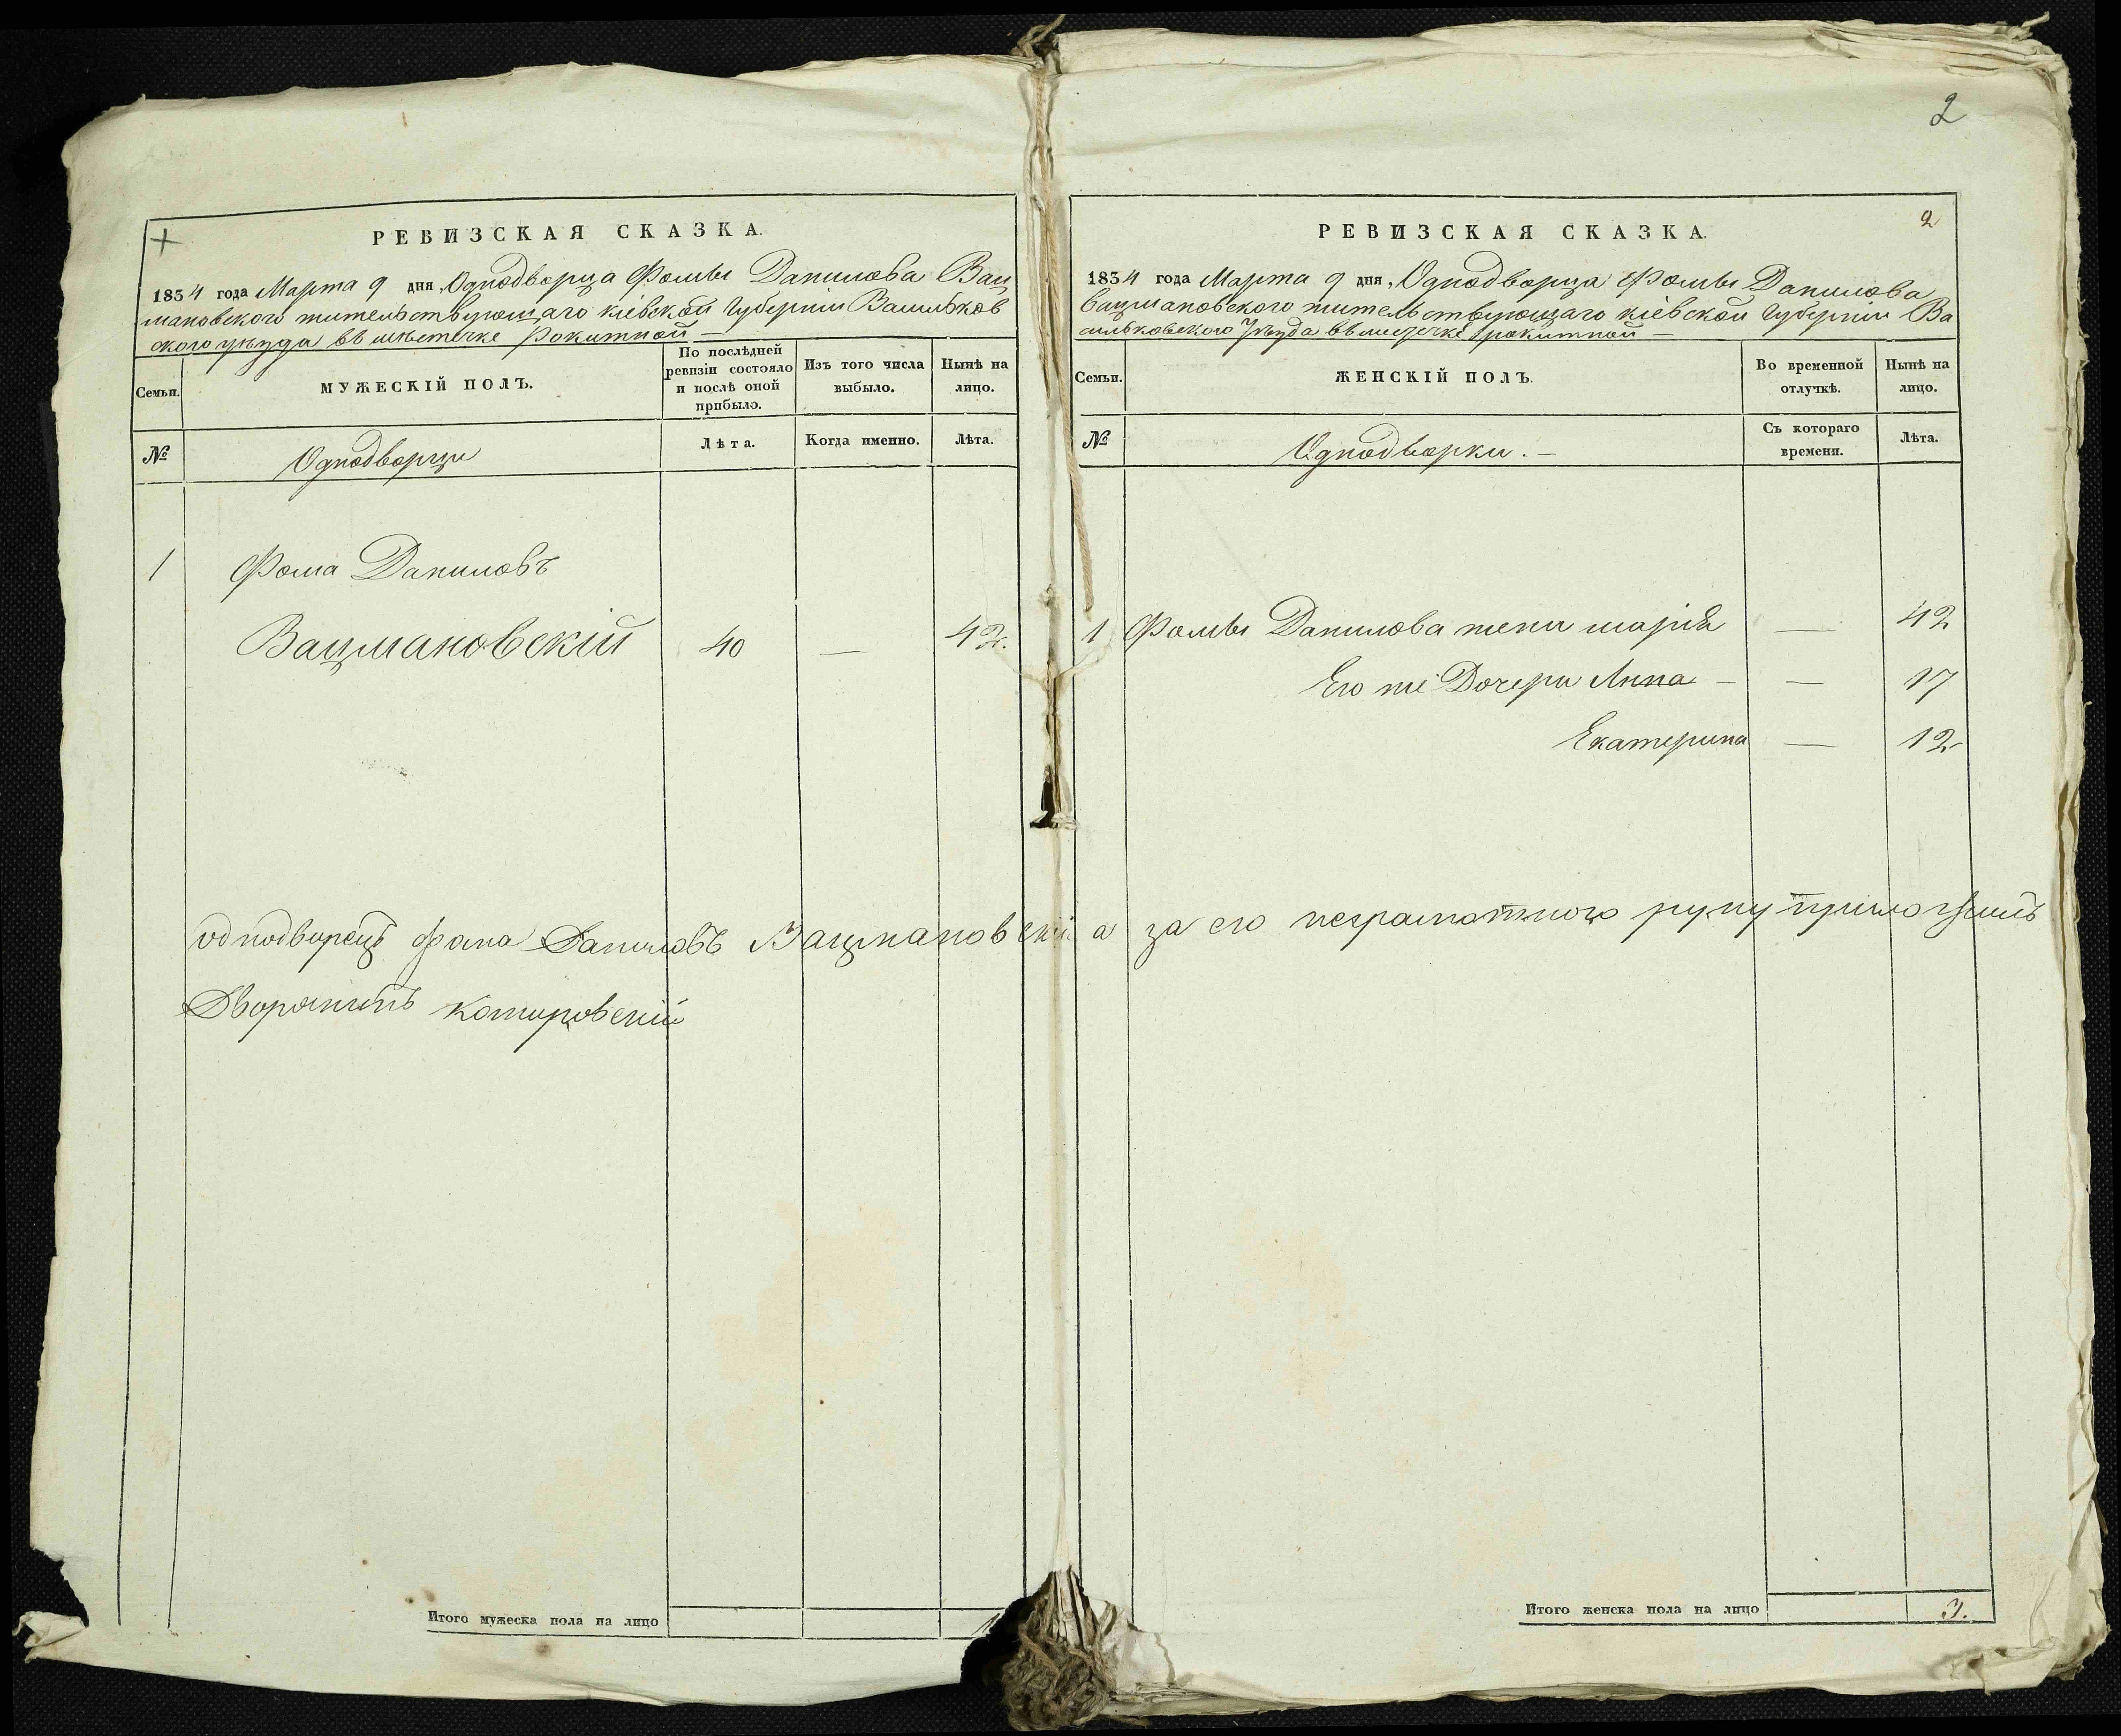 2
РЕВИЗСКАЯ СКАЗКА.
1834 года Марта 9 дня, Однодворца Фомы Данилова Вац
мановского жительствующаго кіевской Губерніи Васильков
ского уѣзда въ мѣстечке Рокитной —
Семьи.
МУЖЕСКІЙ ПОЛЪ.
По послѣдней
ревизіи состояло
и послѣ оной
прибыло.
Изъ того числа
выбыло.
Нынѣ на
лицо.
№
Однодворци
Лѣта.
Когда именно.
Лѣта.
1 Фома Даниловъ
Вацмановскій 40 — 42.
РЕВИЗСКАЯ СКАЗКА.
2
1834 года Марта 9 дня, Однодворца Фомы Данилова
Вацмановского жительствующаго кіевской Губерніи Ва
сильковского Уѣзда въ местечке рокитной —
Семьи.
ЖЕНСКІЙ ПОЛЪ.
Во временной
отлучкѣ.
Нынѣ на
лицо.
№
Однодворки. —
Съ котораго
времени.
Лѣта.
1 Фомы Данилова жена марія — 42
Его же Дочери Анна — — 17
Екатерина — 12
однодворецъ фома Даниловъ Вацмановскій а за его неграмотного руку приложилъ
Дворянинъ
Итого мужеска пола на лицо 1
Итого женска пола на лицо 3.